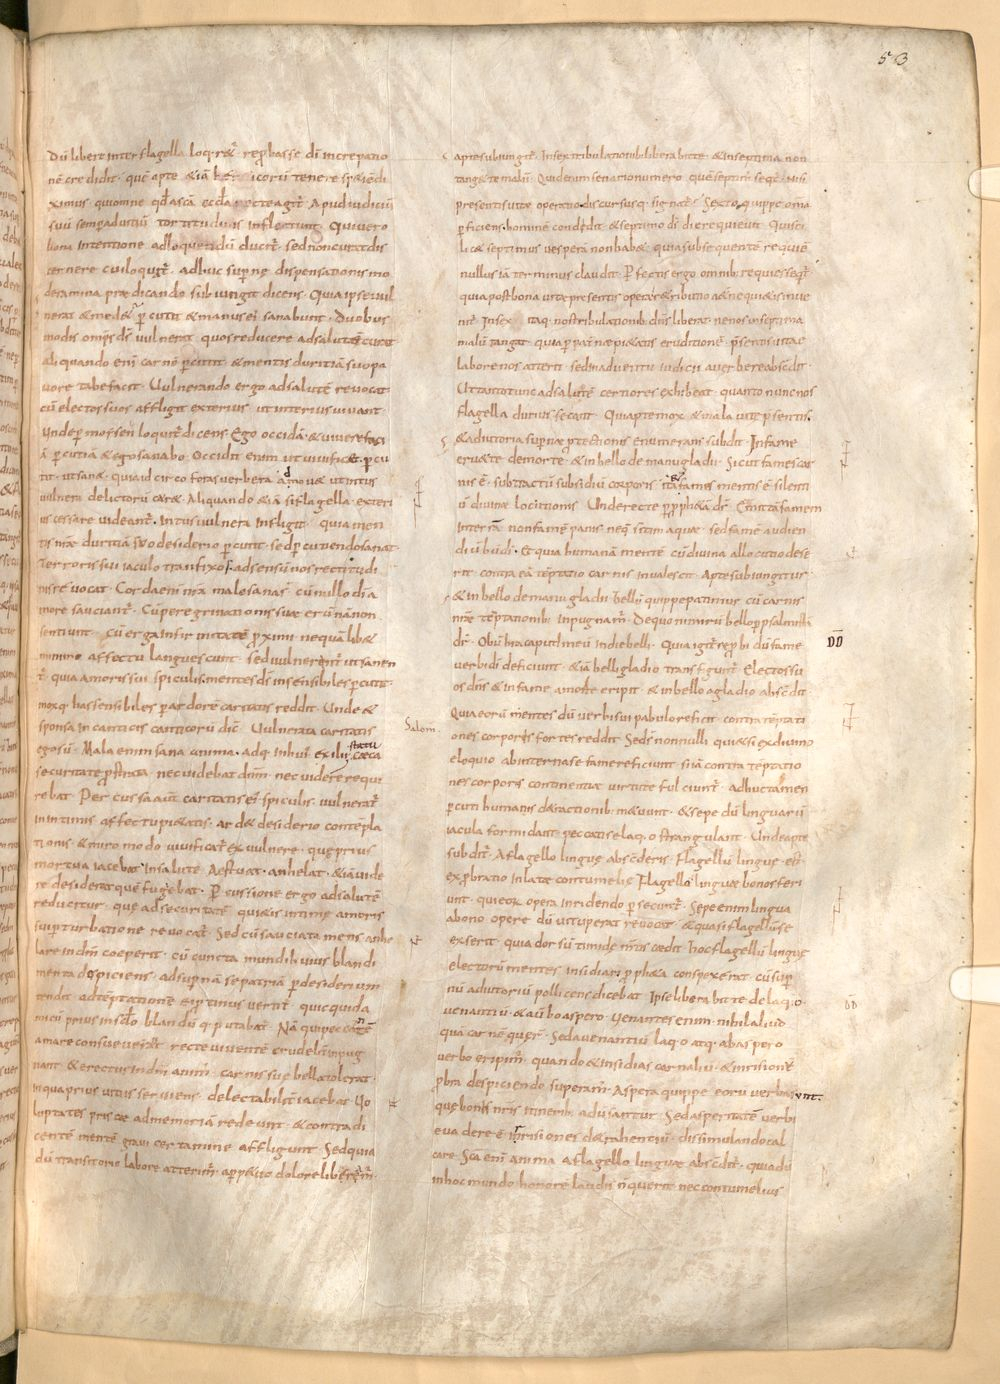 53
Dū libere inter flagella loq̄reẽ rep̄hasse dn̄i increpatio
nē credidit · quē apte &iā her icorū tenere sp̄ē ediximus
ximus qui omne qd̄ a scā eccła recte agit̄ · Apud iudiciū
suū semp aduitiū tortitudinis inflectunt · Qui uero
bona intentione adloquendū ducit̄ · sed non cuncta dis
cernere cui loquit̄ · adhuc supn̄ę dispensationis mo
deramina prædicando subiungit dicens · Quia ipse uul
nerat & medet̄ p̄cutit & manus ei sanabunt · Duobus
modis omp̄s ds̄ uulnerat quos reducere ad salutē curat
Aliquando enī carnē p̄cutit · & mentis duritiā suo pa
uore tabefacit · Uulnerando ergo ad salutē reuocat
cū electos suos affligit exterius ut interius uiuant ·
Unde p moysen loquit̄ dicens · Ego occidā & uiuere faci
ā percutiā & ego sanabo · Occidit enim ut uiuificet · p̄cu
tit · ut sanet · quia idcirco foras uerbera admouet ut intus
uulnera delictorū curet · Aliquando &iā si flagella exteri
us cessare uideant̄ · Intus uulnera infligit · quia men
tis nr̄ae duritiā suo desiderio p̄cutit · sed p̄cutiendo sanat
terroris sui iaculo transfixos ad sensū nos rectitudi
nis reuocat · Corda enī nr̄a male sana s̄ cū nullo dī a
more sauciant̄ · Cū peregrinationis suae erūnā non
sentiunt · cū erga infirmitatē p̄ximi nequā lib&
minimo affectu languescunt · sed uulnerent̄ ut sanen
t̄ · quia amoris sui spiculis mentes ds̄ insensibiles p̄cutit
moxq̄ has sensibiles p ardorē caritatis reddit · Unde &
sponsa in canticis canticorū dic̄ · Uulnerata caritate
ego sū · Mala enim sana anima · adq̄ in hui exilii statu cæca
securitate p̄strata · nec uidebat dn̄m · nec uidere requi
rebat · Percussa aut̄ caritatis ei spiculis · uulnerat̄
in intimis affectu pi&atis · ardet desiderio contēpla
tionis · & miro modo uiuificat̄ ex uulnere · quę prius
mortua iacebat in salute · Aestuat · anhelat · &iā uide
re desiderat quē fugiebat · Percussione ergo ad salutē
reducitur · quę ad securitatē quietis intimę amoris
sui pturbatione reuocat̄ · Sed cū sauciata mens anhe
lare in dm̄ coeperit · cū cuncta mundi huius blandi
menta despiciens · ad supnā se patriā p desideriū
tendit · ad tēptationē ei ptinus uertit̄ · quicquid a
micū prius in scło blandū q̄ putabat̄ · Nā qui peccantē
amare consueuerant · recte uiuentē crudelit̄ inpug
nant · & erectus in dn̄m anim̄ · carnis suę bella tolerat ·
in qua prius uitiis seruiens · delectabilit̄ iacebat · Uo
luptates priscae ad memoriā redeunt · & contradi
centē mentē graui certamine affligunt · Sed quia
dū transitorio labore atterim̄ · a perp&uo dolore liberem̄
Salom̄ ·
apte subiungit̄ · In sex tribulationib liberabit te · & in septima non
tang& te malū · Quid enim senario numero quē septim̄ seq̄t · nisi
presentis uitæ operatio discursusq̄ signat̄ · Sexto quippe om̄a
p̄ficiens hominē condidit & septimo ds̄ die requieuit · Qui sci
lic& septimus uesperā non hab& · quia subsequentē requiē
nullus iā terminus claudit · P̄fectis ergo omnib requies seq̄t̄
quia post bona uitæ presentis opera r&ributio aet̄nę qui&is inue
nit̄ · In sex itaq̄ nos tribulationib dn̄s liberat · ne nos in septima
malū tangat · quia p pat̄næ pi&atis eruditionē p̄sentis uitae
labore nos atterit · sed in aduentu iudicii a uerbere abscdit
Ut tanto tunc ad salutē certiores exhibeat · quanto nunc nos
flagella durius secant · Qui apte mox & mala uitę p̄sentis ·
& adiutoria supnæ p̄tectionis enumerans subdit · In fame
eru& te de morte · & in bello de manu gladii · Sicut fames car
nis ē · subtractū subsidiū corporis ita & fames mentis ē silenti
ū diuinae locutionis · Unde recte p p̄ph&ā dr̄ · Emittā famem
in terrā non famē panis neq̄ sitim aquae · sed famē audien
di uībū dī · Et quia humanā mentē cū diuina allocutio dese
rit · contra eā tēptatio carnis inualescit · Apte subiungitur ·
& in bello de manu gladii · Belli quippe patimur cū carnis
nr̄ae tēptationib inpugnam̄ · De quo nimirū bello p psalmistā
dr̄ · Obūbra caput meū in die belli · Quia igit̄ rep̄bi dū fame
uerbi dī deficiunt · &iā belli gladio transfigunt̄ · Electos su
os dn̄s & in fame a morte eripit · & in bello a gladio abscdit ·
Quia eorū mentes dū uerbi sui pabulo reficit · contra tēptati
ones corporis fortes reddit · Sed s̄ nonnulli qui &si ex diuino
eloquio ab interna se fame reficiunt · si iā contra tēptatio
nes corporis continentiæ uirtute fulciunt̄ · adhuc tamen
p̄cuti humanis d&ractionib m&uunt · & sepe dū linguarū
iacula formidant · peccati se laq̄o strangulant · Unde apte
subdit̄ · A flagello linguę absconderis · Flagellū linguę est
exp̄bratio inlatę contumelię · Flagello linguae bonos feri
unt · qui eor̄ opera inridendo p̄secunt̄ · Sepe enim lingua
a bono opere dū uituperat reuocat & quasi flagellū se
exerit quia dorsū timidę m̄tis cædit · hoc flagellū linguę
electorū mentes insidiari p̄ph&a conspexerat cū sup
nū adiutoriū pollicens dicebat · Ipse liberabit te de laq̄o
uenantiū · & a uībo aspero · Uenantes enim nihil aliud
quā carnē querunt̄ · Sed a uenantiū laq̄o atq̄ ab aspero
uerbo eripim̄ · quando & insidias carnaliū · & inrisionē
p̄bra despiciendo superam̄ · Aspera quippe eorū uerba sunt ·
quę bonis nr̄is itinerib · aduersantur · Sed asperitatē uerbi
euadere ē inrisiones d&rahentiū · dissimulando cal
care · Scā enī anima a flagello linguae abscdit̄ · quia dū
in hoc mundo honorē laudis n̄ querit · nec contumelias
DD
DD